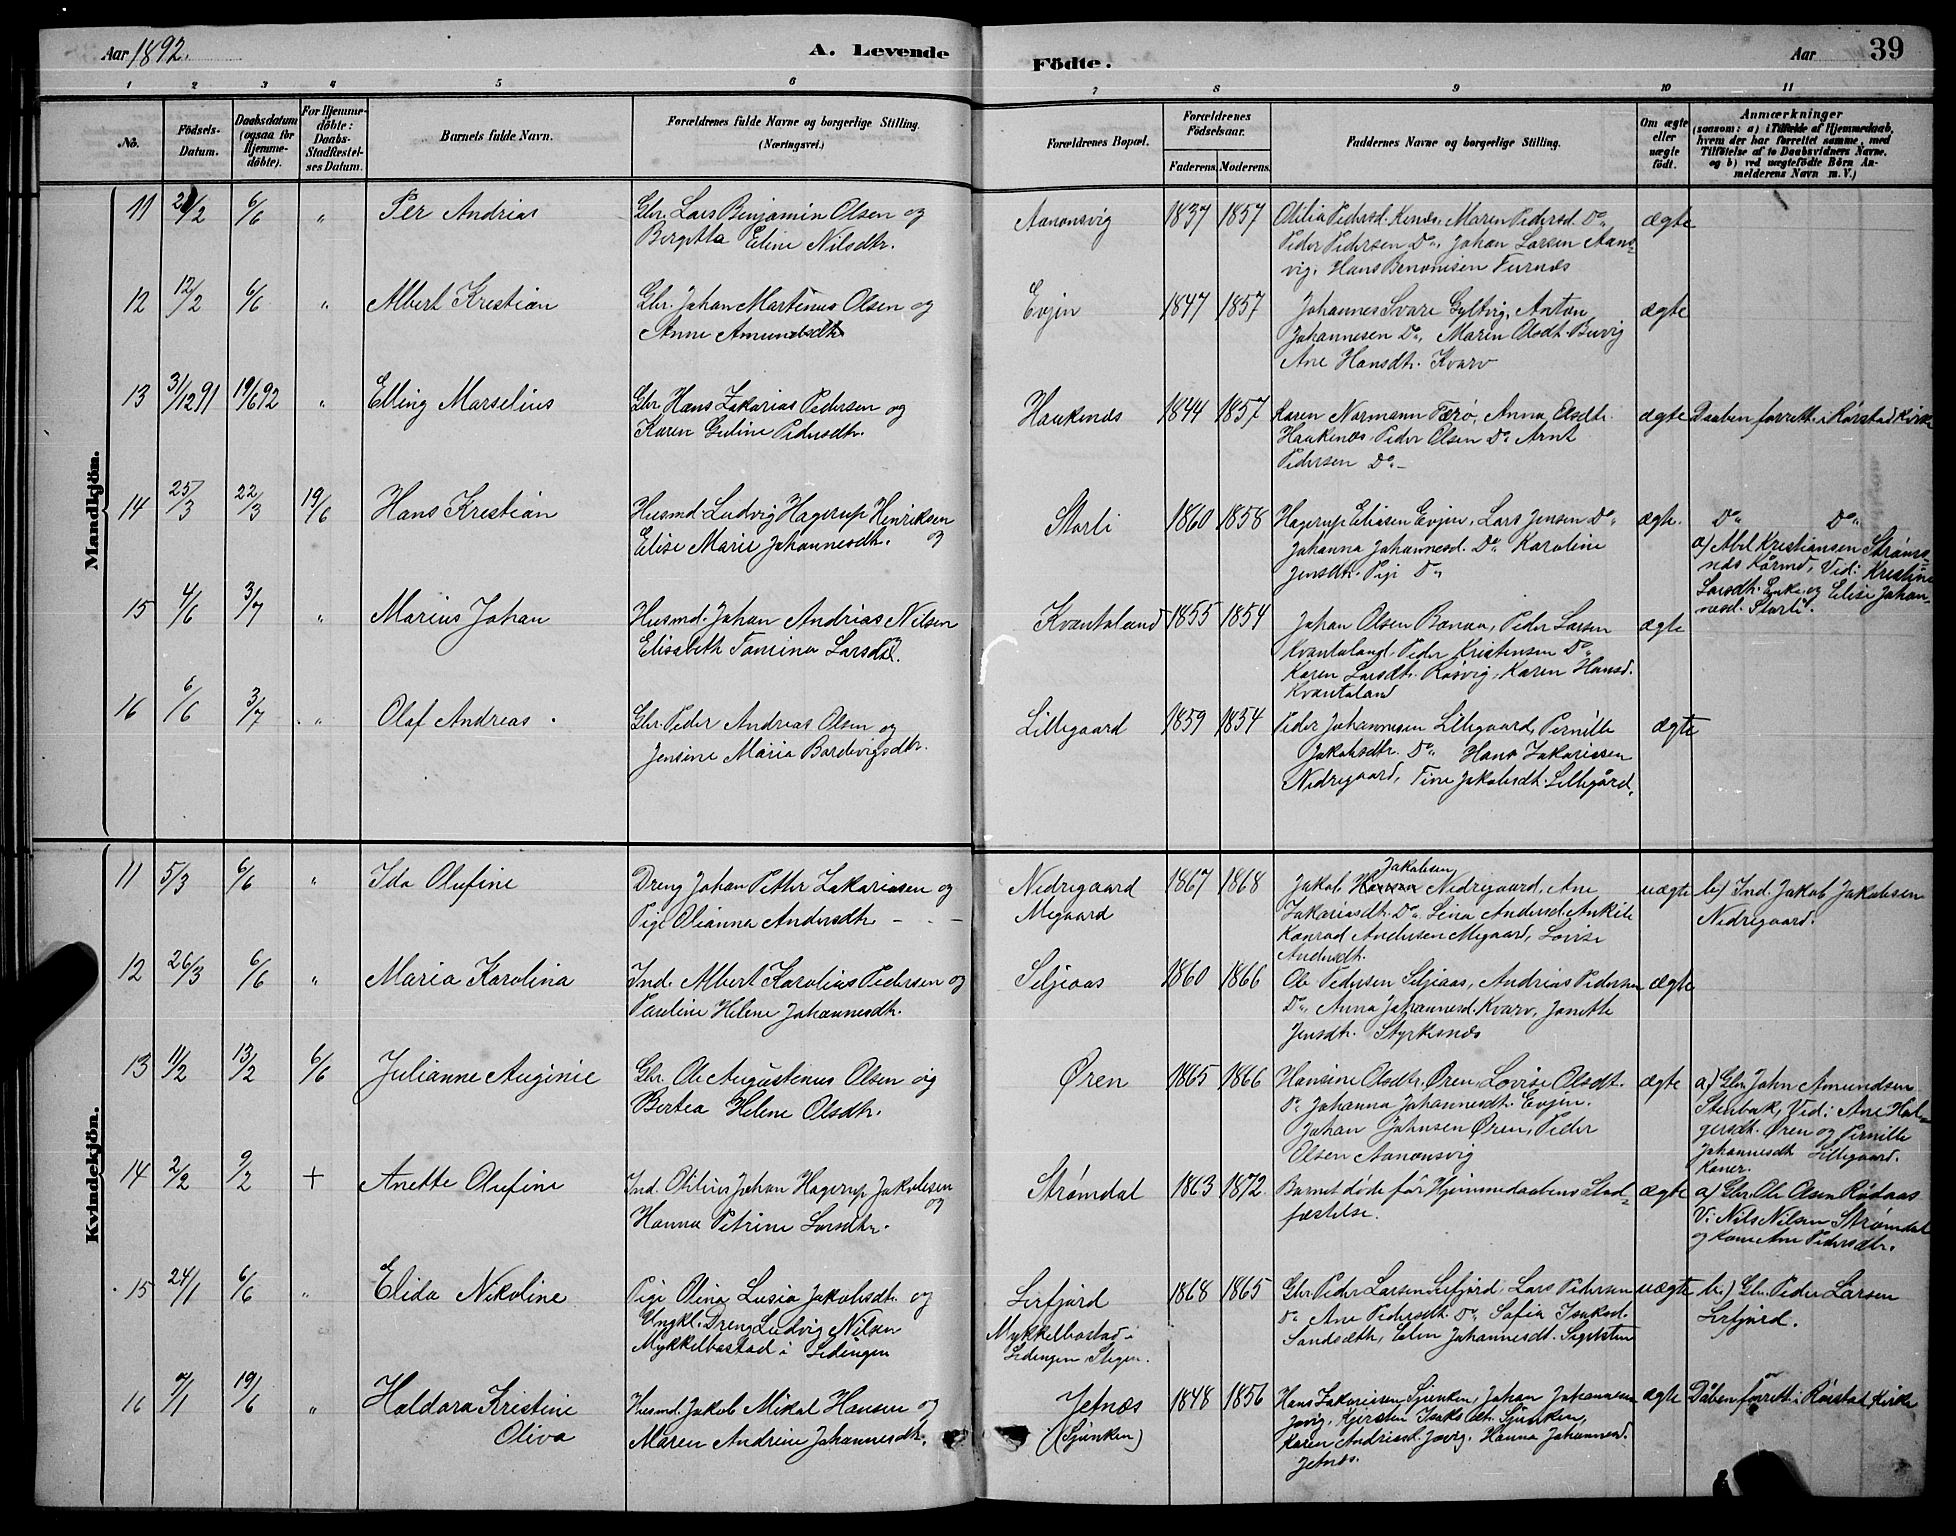 Aar 1892. A. Levende Födte. Aar 39
1 2 3 4 5 6 7 8 9 10 11
No. Födsels-Datum. Daabsdatum (ogsaa for Hjemme-döbte). For Hjemme-döbte: Daabs-Stadfæstel-ses Datum. Barnets fulde Navn. Forældrenes fulde Navne og borgerlige Stilling. (Næringsvei.) Forældrenes Bopæl. Forældrenes Födselsaar. Faderens. Moderens. Faddernes Navne og borgerlige Stilling. Om ægte eller uægte födt. Anmærkninger (saasom: a) i Tilfælde af Hjemmedaab, hvem der har forrettet samme, med Tilföielse af to Daabsvidners Navne, og b) ved uægtefödte Börn An-melderens Navn m. V.)
Mandkjön.
11 21/2 6/6 " Per Andrias Gbr. Lars Benjamin Olsen og Aanonsvig 1837 1857 Otilia Pedersd. Kenes, Maren Pedersd. Do. ægte
Bergitta Eline Nilsdtr. Peder Pedersen Do. Johan Larsen Aans-
vig, Hans Benonisen Furnæs
12 12/2 6/6 " Albert Krestian Gbr. Johan Martinus Olsen og Evjen 1847 1857 Johannes Svare Gyltvig, Anton ægte
Anne Amundsdtr. Johannesen Do, Maren Olsdt. Buvig
Ane Hansdtr. Kvarv
13 31/12 91 19/6 92 " Elling Marselius Gbr. Hans Zakarias Pedersen og Haukenæs 1844 1857 Karen Normann Færø, Anna Elsdtr. ægte Daaben forrett. i Rørstad Kirke
Karen Guline Pedersdtr. Haukenæs, Peder Olsen Do Arnt
Pedersen Do. –
14 25/3 22/3 19/6 Hans Krestian Husmd. Ludvig Hagerup Henriksen Storli 1860 1858 Hagerup Eliasen Evjen, Lars Jensen Do. ægte. Do. Do.
Elise Marie Johannesdtr. og Johanna Johannesd. Do. Karoline a) Abel Kristiansen Strøms-
Jensdtr. Pige Do. næs Kårmd, Vid: Kristine
Larsdtr. Enke og Elise Johan-
nesd. Storli.
15 4/6 3/7 " Marius Johan Husmd. Johan Andrias Nilsen Kvantoland 1855 1854 Johan Olsen Bonaa, Peder Larsen ægte
Elisabeth Tomina Larsdtr. Kvantoland. Peder Kristensen Do.
Karen Larsdtr. Røsvig, Karen Hansd.
Kvantoland
16 6/6 3/7 " Olaf Andreas. Gbr. Peder Andreas Olsen og Lillegaard 1859 1854 Peder Johannesen Lillegaard, Pernille ægte
Jensine Maria Bordevigsdtr. Jakobsdtr. Do. Hans Zakariasen
Nedregaard, Tine Jakobsdt. Lillegård.
Kvindekjön.
11 5/3 6/6 " Ida Olufine Dreng Johan Petter Zakariasen og Nedregaard 1867 1868 Jakob Jakobsen Nedregaard, Ane uægte b.) Ind. Jakob Jakobsen
Pige Olianna Andersdtr. – – Megaard Zakariasdtr. Do. Lina Andersd. Ankile Nedregaard.
Konrad Andersen Megaard, Lovise
Andersdt.
12 26/3 6/6 " Maria Karolina Ind. Albert Karolius Pedersen og Siljeaas 1860 1866 Ole Pedersen Siljeaas, Andrias Pedersen ægte
Pauline Helene Johannesdtr. Do. Anna Johannesd. Kvarv, Janette
Jensdtr. Styrkesnæs
13 11/2 13/2 6/6 Julianne Auginie Gbr. Ole Augustenus Olsen og Øren 1865 1866 Hansine Olsdtr. Øren, Lovise Olsdt. ægte a) Gbr. John Amundsen
Bertea Helene Olsdtr. Do. Johanna Johannesdt. Evjen. Stenbak, Vid: Ane Hol-
Johan Johnsen Øren, Peder gersdt. Øren og Pernille
Olsen Aanonsvig Johannesdt. Lillegaard.
Koner.
14 2/2 9/2 + Anette Olufine Ind. Otilius Johan Hagerup Jakobsen Strømdal 1863 1872. Barnet døde før Hjemmedaabens Stad- ægte a) Gbr. Ole Olsen Rødaas
og Hanna Petrine Larsdtr. fæstelse. V: Nils Nilsen Strømdal
og Kone Ane Pedersdtr.
15 24/1 6/6 " Elida Nikoline Pige Olina Lusia Jakobsdt. og Lerfjord 1868 1865 Gbr. Peder Larsen Leifjord, Lars Pedersen uægte b.) Gbr. Peder Larsen
Ungkl. Dreng Ludvig Nilsen Mykkelbostad i Do. Ane Pedersdt. Do. Sofia Isaksd. Leifjord.
Mykkelbostad i Ledingen Ledingen, Stegen. Sandsæth, Elen Johannesdt. Sigelsten
16 7/1 19/6 " Haldora Kristine Husmd. Jakob Mikal Hansen og Jetnæs 1848 1856 Hans Zakariasen Sjunken, Johan Johannesen ægte Dåben forrett. i Rørstad Kirke
Oliva Maren Andrine Johannesdtr. (Sjunken) Jøvig, Kjersten Isaks dt. Sjunken,
Karen Andriasd. Jøvig. Hanna Johannesd.
Jetnæs.